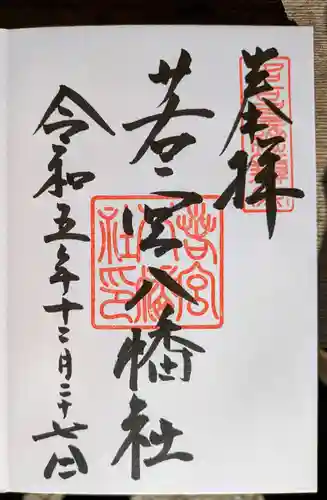 奉拝
若宮八幡社
令和五年十二月二十七日
若宮八幡社印